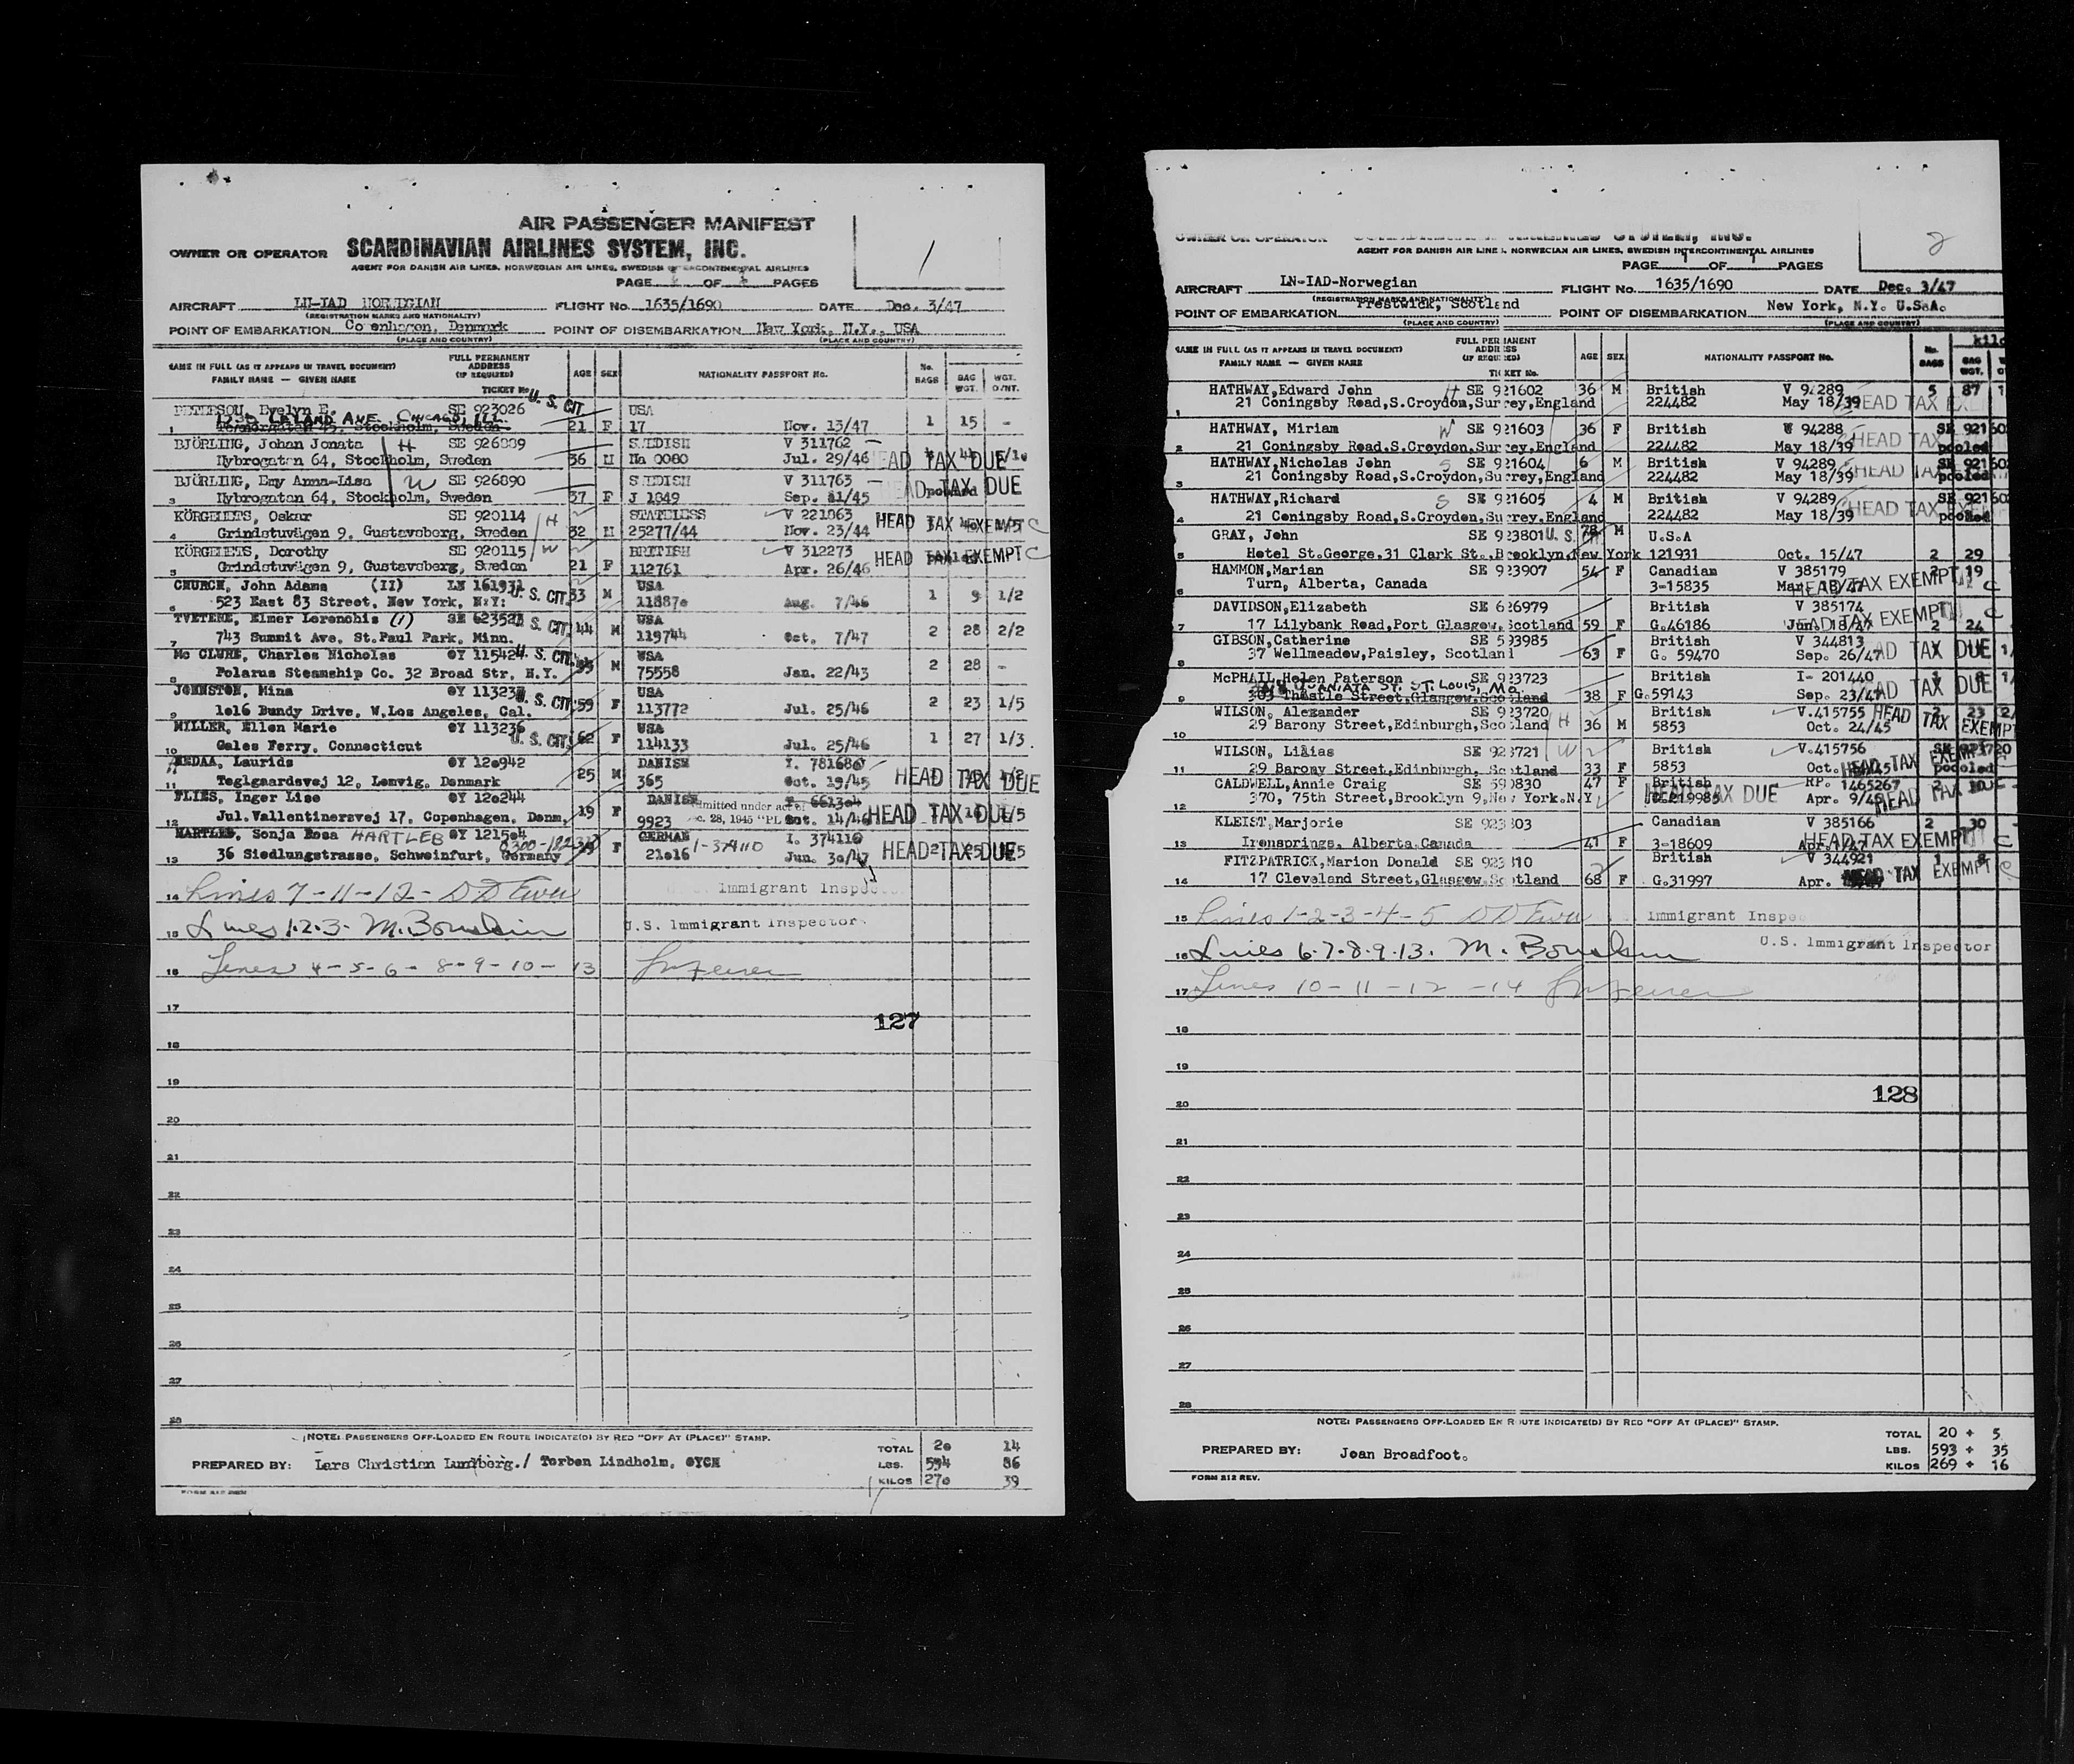 AIR PASSENGER MANIFEST
OWNER OR OPERATOR SCANDINAVIAN AIRLINES SYSTEM, INC.
AGENT FOR DANISH AIR LINES, NORWEGIAN AIR LINES, SWEDISH INTERCONTINENTAL AIRLINES
PAGE OF PAGES
1
AIRCRAFT LN-IAD NORWEGIAN FLIGHT No. 1635/1690 DATE Dec. 3/47
(REGISTRATION MARKS AND NATIONALITY)
POINT OF EMBARKATION Copenhagen, Denmark POINT OF DISEMBARKATION New York, N.Y., USA
(PLACE AND COUNTRY) (PLACE AND COUNTRY)
NAME IN FULL (AS IT APPEARS IN TRAVEL DOCUMENT) FULL PERMANENT ADDRESS (IF REQUIRED) AGE SEX NATIONALITY PASSPORT No. No. BAGS BAG WGT. WGT. O/HT.
FAMILY NAME — GIVEN NAME TICKET No.
PETERSON, Evelyn E. SE 923026 U. S. CIT. USA
1232 LELAND AVE. CHICAGO, ILL.
1 45, Stockholm, Sweden 21 F 17 Nov. 13/47 1 15 -
BJÖRLING, Johan Jonata H SE 926889 SWEDISH V 311762
2 Nybrogatan 64, Stockholm, Sweden 36 M Na 0080 Jul. 29/46 HEAD TAX DUE
BJÖRLING, Emy Anna-Lisa W SE 926890 SWEDISH V 311763
3 Nybrogatan 64, Stockholm, Sweden 37 F J 1849 Sep. 11/45 HEAD TAX DUE pooled
KÖRGELIETS, Oskar SE 920114 H STATELESS V 221063
4 Grindstuvägen 9, Gustavsberg, Sweden 32 M 25277/44 Nov. 23/44 HEAD TAX EXEMPT C
KÖRGELIETS, Dorothy SE 920115 W BRITISH V 312273
5 Grindstuvägen 9, Gustavsberg, Sweden 21 F 112761 Apr. 26/46 HEAD TAX EXEMPT C
CHURCH, John Adams (II) LN 161931 U. S. CIT. USA
6 523 East 83 Street, New York, N.Y: 33 M 11887o Aug. 7/46 1 9 1/2
TVETERE, Elmer Lorenchis (1) SE 623523 U. S. CIT. USA
7 743 Summit Ave. St.Paul Park, Minn. 44 M 119744 Oct. 7/47 2 28 2/2
Mc CLURE, Charles Nicholas OY 115424 U. S. CIT. USA
8 Polarus Steamship Co. 32 Broad Str. N.Y. M 75558 Jan. 22/43 2 28 -
JOHNSTON, Mina OY 113237 U. S. CIT. USA
9 1o16 Bundy Drive, W.Los Angeles, Cal. 59 F 113772 Jul. 25/46 2 23 1/5
MILLER, Ellen Marie OY 113236 USA
10 Gales Ferry, Connecticut U. S. CIT. 62 F 114133 Jul. 25/46 1 27 1/3
Laurids OY 12o942 DANISH I. 781686
11 Teglgaardsvej 12, Lemvig, Denmark 25 M 365 Oct. 19/45 HEAD TAX DUE
FLIES, Inger Lise OY 12o244 DANISH 6613o4
12 Jul.Vallentinersvej 17, Copenhagen, Denm. 19 F 9923 Admitted under act of Dec. 28, 1945 "PL Oct. 14/46 HEAD TAX DUE
HARTLEB, Sonja Rosa HARTLEB OY 1215o4 GERMAN I. 374110
13 36 Siedlungstrasse, Schweinfurt, Germany F 21o16 1-374110 Jun. 3o/47 HEAD TAX DUE
14 Lines 7-11-12- Immigrant Inspector
15 Lines 1.2.3. M. U.S. Immigrant Inspector
16 Lines 4-5-6-8-9-10-13
17
127
18
19
20
21
22
23
24
25
26
27
28
NOTE: PASSENGERS OFF-LOADED EN ROUTE INDICATE(D) BY RED "OFF AT (PLACE)" STAMP.
TOTAL 2o 14
PREPARED BY: Lars Christian Lundberg./ Torben Lindholm, OYCH LBS. 594 86
KILOS 27o 39
OWNER OR OPERATOR SCANDINAVIAN AIRLINES SYSTEM, INC.
AGENT FOR DANISH AIR LINES, NORWEGIAN AIR LINES, SWEDISH INTERCONTINENTAL AIRLINES
PAGE OF PAGES
2
AIRCRAFT LN-IAD-Norwegian FLIGHT No. 1635/1690 DATE Dec. 3/47
(REGISTRATION MARKS AND NATIONALITY)
POINT OF EMBARKATION Prestwick, Scotland POINT OF DISEMBARKATION New York, N.Y. U.S.A.
(PLACE AND COUNTRY) (PLACE AND COUNTRY)
NAME IN FULL (AS IT APPEARS IN TRAVEL DOCUMENT) FULL PERMANENT ADDRESS (IF REQUIRED) AGE SEX NATIONALITY PASSPORT No. No. BAGS BAG WGT.
FAMILY NAME — GIVEN NAME TICKET No.
HATHWAY,Edward John H SE 921602 36 M British V 94289 5 87
1 21 Coningsby Road,S.Croydon,Surrey,England 224482 May 18/39 HEAD TAX
HATHWAY, Miriam W SE 921603 36 F British V 94288 SE 921602
2 21 Coningsby Road.S.Croydon,Surrey,England 224482 May 18/39 HEAD TAX pooled
HATHWAY,Nicholas John S SE 921604 6 M British V 94289 SE 921602
3 21 Coningsby Road,S.Croydon,Surrey,England 224482 May 18/39 HEAD TAX pooled
HATHWAY,Richard S SE 921605 4 M British V 94289 SE 921602
4 21 Coningsby Road,S.Croydon,Surrey,England 224482 May 18/39 HEAD TAX pooled
GRAY, John SE 923801 U. S. 78 M U.S.A
5 Hotel St.George,31 Clark St.,Brooklyn,New York 121931 Oct. 15/47 2 29
HAMMON,Marian SE 923907 54 F Canadian V 385179 2 19
6 Turn, Alberta, Canada 3-15835 HEAD TAX EXEMPT C
DAVIDSON,Elizabeth SE 626979 British V 385174
7 17 Lilybank Road,Port Glasgow,Scotland 59 F G.46186 HEAD TAX EXEMPT C 2 24
GIBSON,Catherine SE 593985 British V 344813
8 37 Wellmeadow,Paisley, Scotland 63 F G. 59470 Sep. 26/47 HEAD TAX DUE
McPHAIL,Helen Paterson SE 923723 British I- 201440
JUANIATA ST. ST. LOUIS, MO.
9 303 Thistle Street,Glasgow,Scotland 38 F G.59143 Sep. 23/47 HEAD TAX DUE
WILSON, Alexander SE 923720 H British V.415755 2 23
10 29 Barony Street,Edinburgh,Scotland 36 M 5853 Oct. 24/45 HEAD TAX EXEMPT
WILSON, Lilias SE 923721 W British V.415756 SE 923720
11 29 Barony Street,Edinburgh, Scotland 33 F 5853 Oct. HEAD TAX EXEMPT pooled
CALDWELL,Annie Craig SE 590830 47 F British RP. 1465267
12 370, 75th Street,Brooklyn 9,New York.N.Y HEAD TAX DUE Apr. 9/46 HEAD TAX
KLEIST,Marjorie SE 923803 Canadian V 385166 2 30
13 Ironsprings, Alberta,Canada 41 F 3-18609 HEAD TAX EXEMPT C
FITZPATRICK,Marion Donald SE 923810 British V 344921 1 8
14 17 Cleveland Street,Glasgow,Scotland 68 F G.31997 Apr. HEAD TAX EXEMPT C
15 Lines 1-2-3-4-5 Immigrant Inspector
16 Lines 6.7.8.9.13. M. U.S. Immigrant Inspector
17 Lines 10-11-12-14
18
19
128
20
21
22
23
24
25
26
27
28
NOTE: PASSENGERS OFF-LOADED EN ROUTE INDICATE(D) BY RED "OFF AT (PLACE)" STAMP.
TOTAL 20 + 5
PREPARED BY: Jean Broadfoot. LBS. 593 + 35
KILOS 269 + 16
FORM 212 REV.